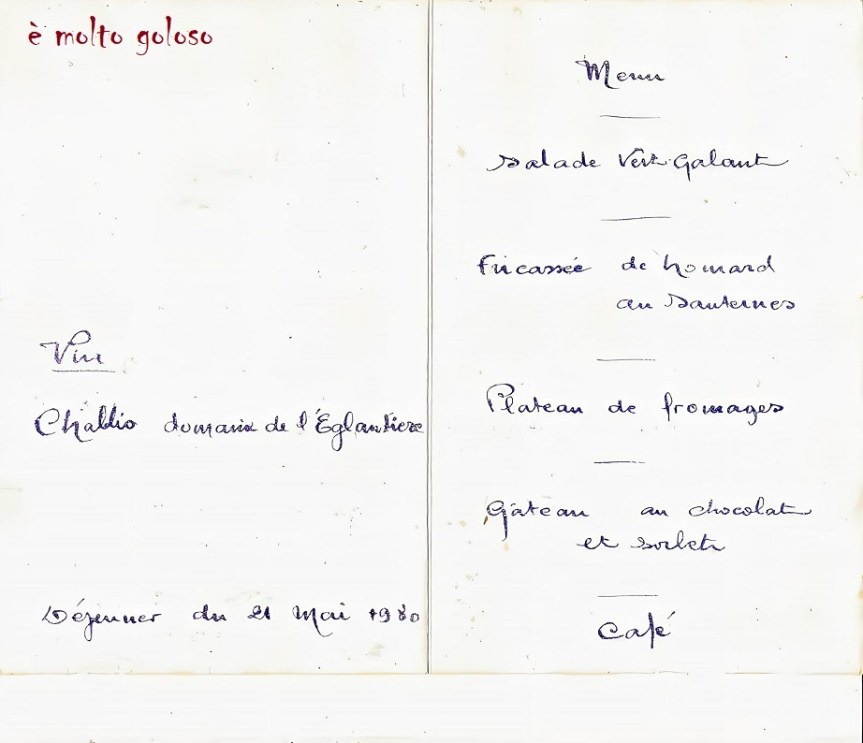 è molto goloso
Vin
Chablis domaine de l'Églantiere
Déjeuner du 21 Mai 1980
Menu
Salade Vert-Galant
Fricassée de homard
au Sauternes
Plateau de fromages
Gâteau au chocolat
et sorbets
Café